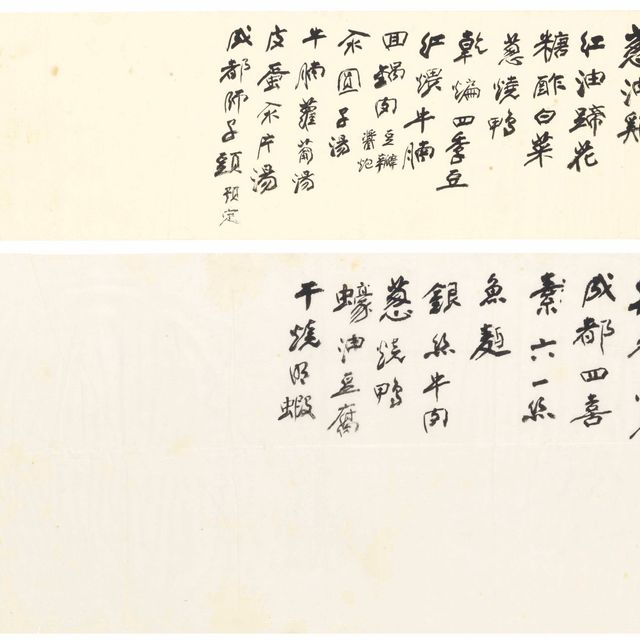 葱油雞
紅油蹄花
糖酢白菜
葱燒鴨
乾煸四季豆
紅煨牛腩
回鍋肉 豆瓣 醬炮
汆圓子湯
牛腩蘿蔔湯
皮蛋汆片湯
成都師子頭 預定
成都四喜
素六一絲
魚麵
銀絲牛肉
葱燒鴨
蠔油豆腐
干燒明蝦